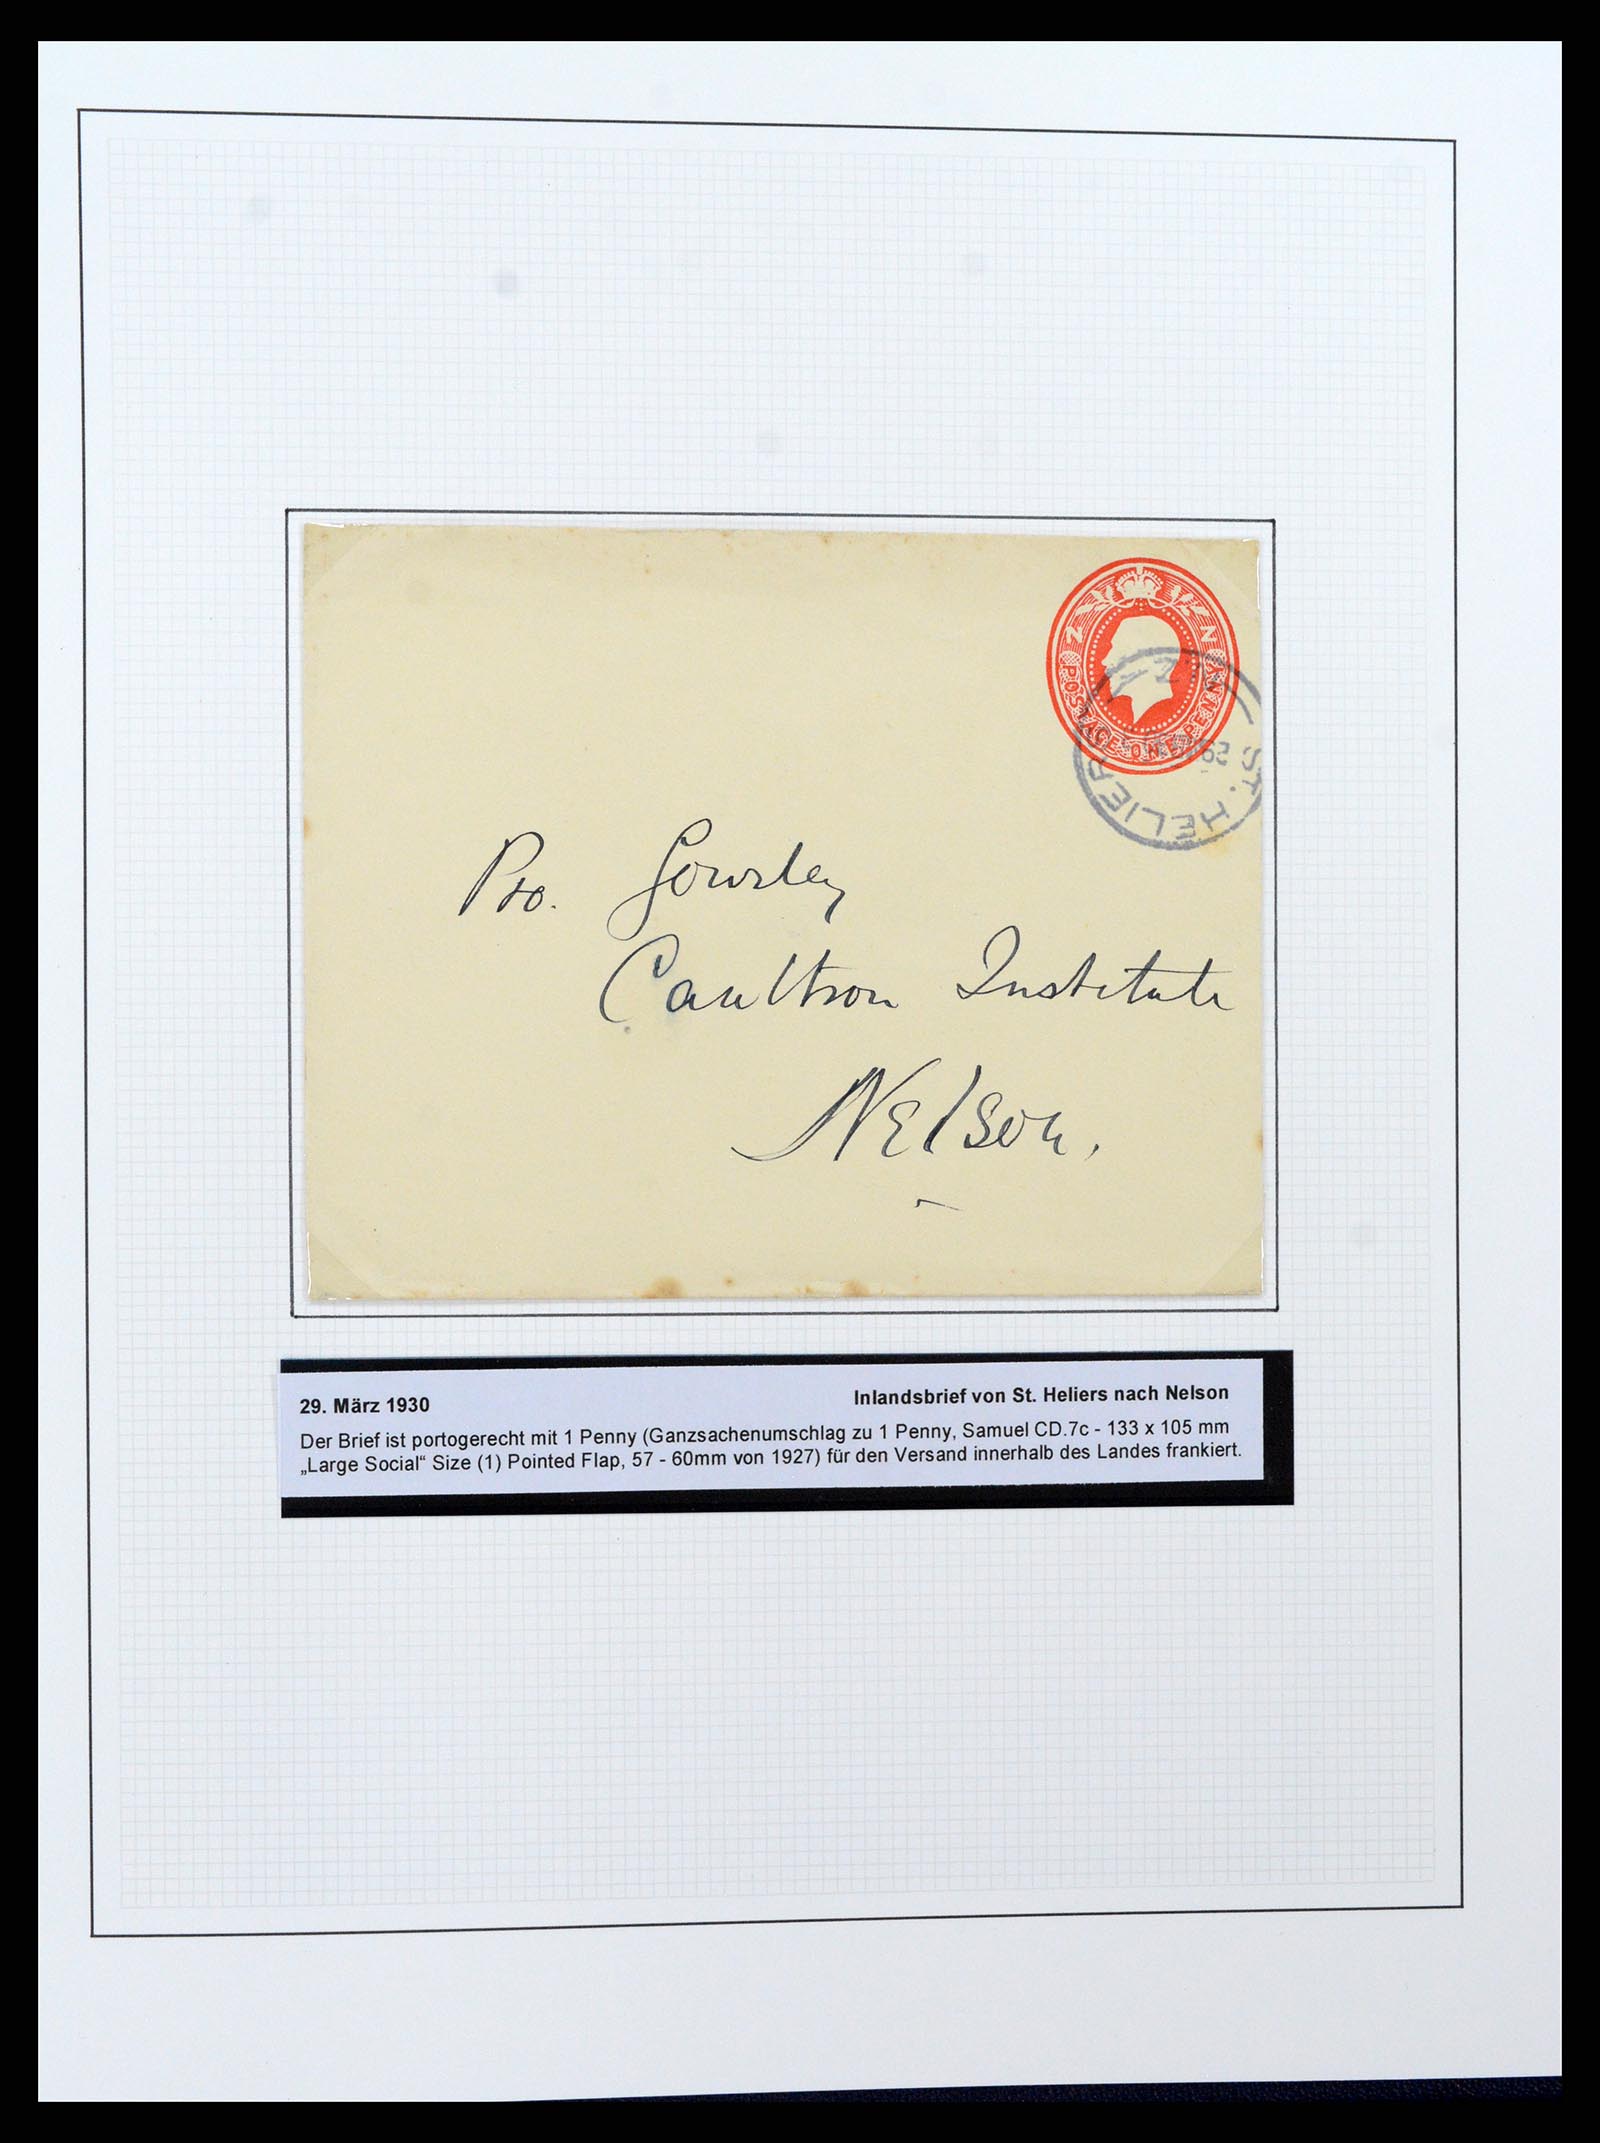 N Z
POSTAGE ONE PENNY
N.Z.
ST. HELIER
Pro. Gourley
Caulthron Institute
Nelson.
29. März 1930 Inlandsbrief von St. Heliers nach Nelson
Der Brief ist portogerecht mit 1 Penny (Ganzsachenumschlag zu 1 Penny, Samuel CD.7c - 133 x 105 mm
„Large Social“ Size (1) Pointed Flap, 57 - 60mm von 1927) für den Versand innerhalb des Landes frankiert.